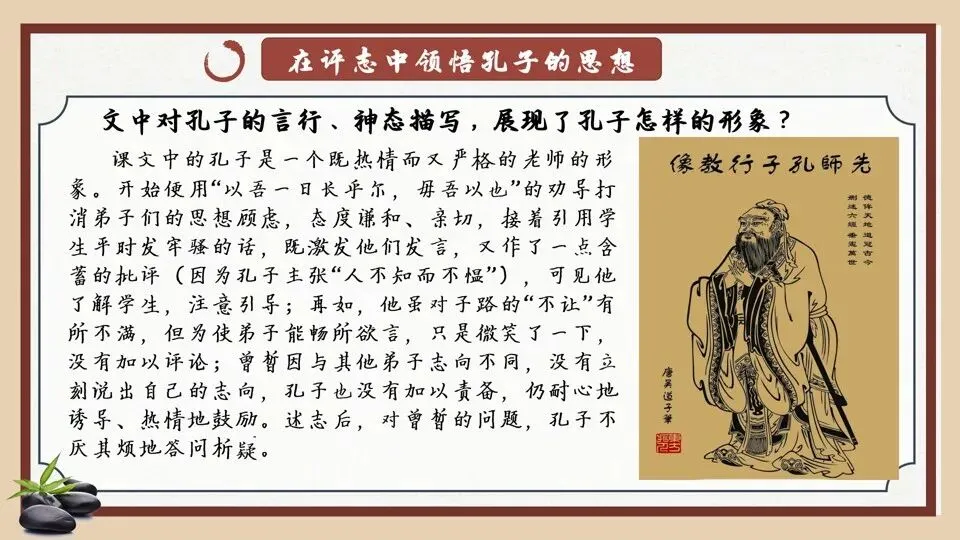 在评志中领悟孔子的思想
文中对孔子的言行、神态描写，展现了孔子怎样的形象？
课文中的孔子是一个既热情而又严格的老师的形
象。开始便用“以吾一日长乎尔，毋吾以也”的劝导打
消弟子们的思想顾虑，态度谦和、亲切，接着引用学
生平时发牢骚的话，既激发他们发言，又作了一点含
蓄的批评（因为孔子主张“人不知而不愠”），可见他
了解学生，注意引导；再如，他虽对子路的“不让”有
所不满，但为使弟子能畅所欲言，只是微笑了一下，
没有加以评论；曾皙因与其他弟子志向不同，没有立
刻说出自己的志向，孔子也没有加以责备，仍耐心地
诱导、热情地鼓励。述志后，对曾皙的问题，孔子不
厌其烦地答问析疑。
像教行子孔師先
德侔天地道冠古今
刪述六經垂憲萬世
唐吳道子筆